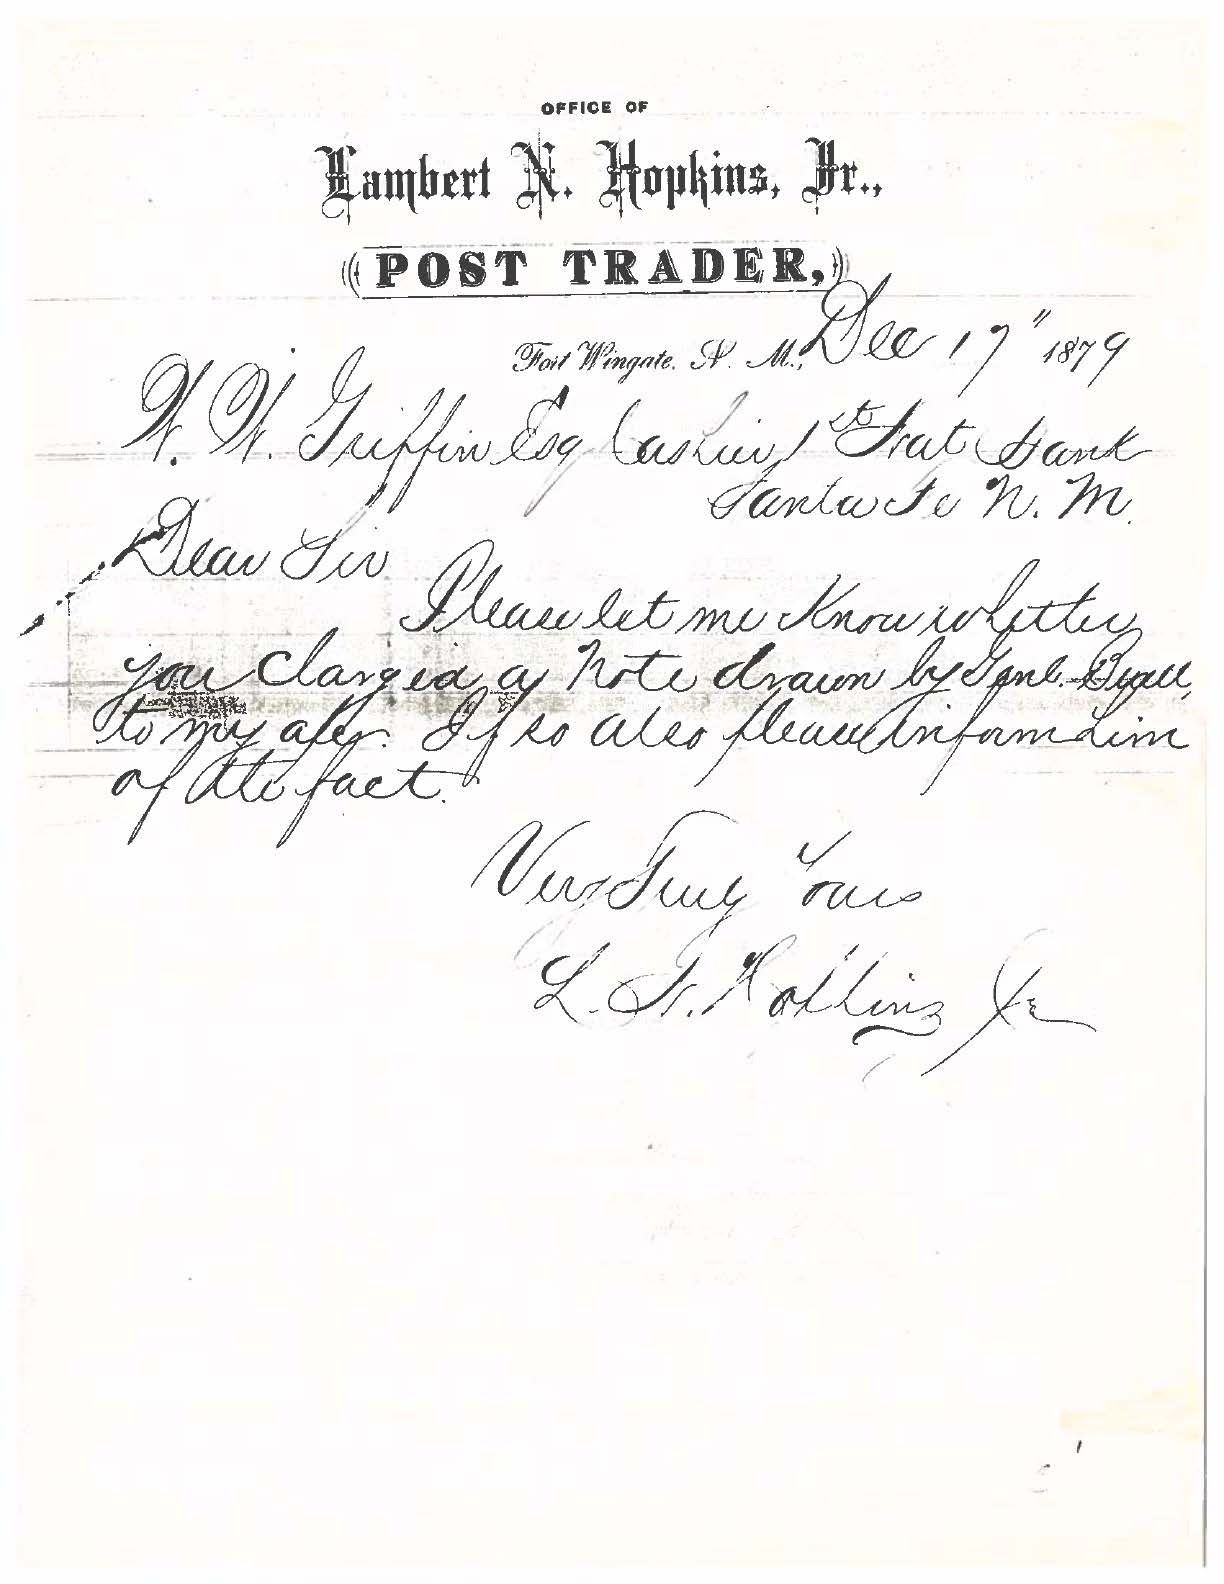 OFFICE OF
Lambert N. Hopkins, Jr.,
POST TRADER,
Fort Wingate, N. M., Dec 17" 1879
W. W. Griffin Esq Cashier 1st Nat Bank
Santa Fe N. M.
Dear Sir
Please let me Know whether
you Charged a Note drawn by Genl.
to my a/c. If so also please inform him
of the fact.
Very Truly Yours
L. N. Hopkins Jr